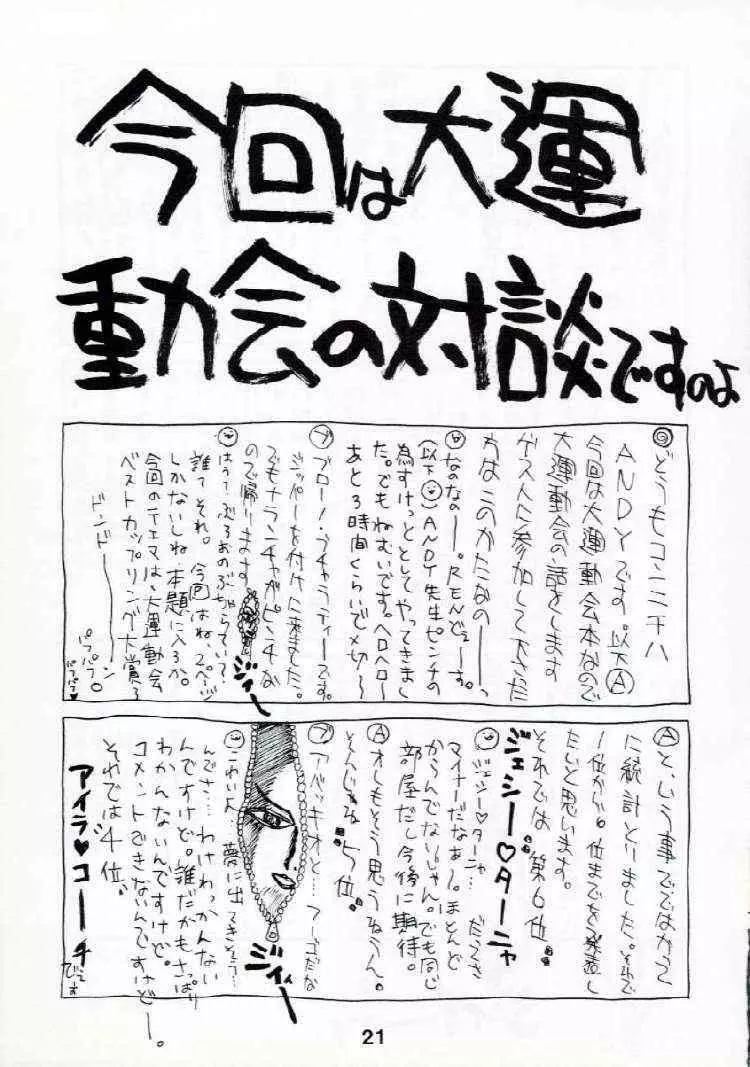 今回は大運
動会の対談ですのよ
Ⓐどうもコンニチハ
ANDYです。以下Ⓐ
今回は大運動会本なので
大運動会の話をします
ゲストに参加して下さた
方はこのかたなのーーっ、
なのなのー。RENどぇーす。
(以下 )ANDY先生ピンチの
為すけっととしてやってきまし
た。でもねむいです。ヘロヘロ〜
あと3時間くらいで〆切〜
ブブロー!ブチャラティーズです。
ジッパーを付けに来ました。
でもナランチャがピンチな
ので帰りーます
はうー?ぶろおのぶちゃらてい?
誰てそれ。今回はね、2ページ
しかないしね、本題に入ろか。
今回のテェマは、大運動会
ベストカップリング大賞ろ
ドンドーーーン
パフパフ○
パフパフ♥
ジィーー
Ⓐという事でではがって
に統計とりました。それで
1位から6位までを発表し
たいと思います。
それでは第6位
ジェシー♡ターニャ
ジェシー♡ターニャ… だうえき
マイナーだなぁー。ほとんど
からんでないじゃん。でも同じ
部屋だし今後に期待。
Ⓐオレもそう思うねうん。
そんじゃね5位。
ブアバッキオと…フーゴだな
こわいよ 夢に出てきそう…
んでさ…わけわっかんない
んですけど。誰だがもさっぱり
わかんないんですけど。
コメントできないんですけどー。
それでは4位、
アイラ♥コーチ
でェす
ジィィー
21